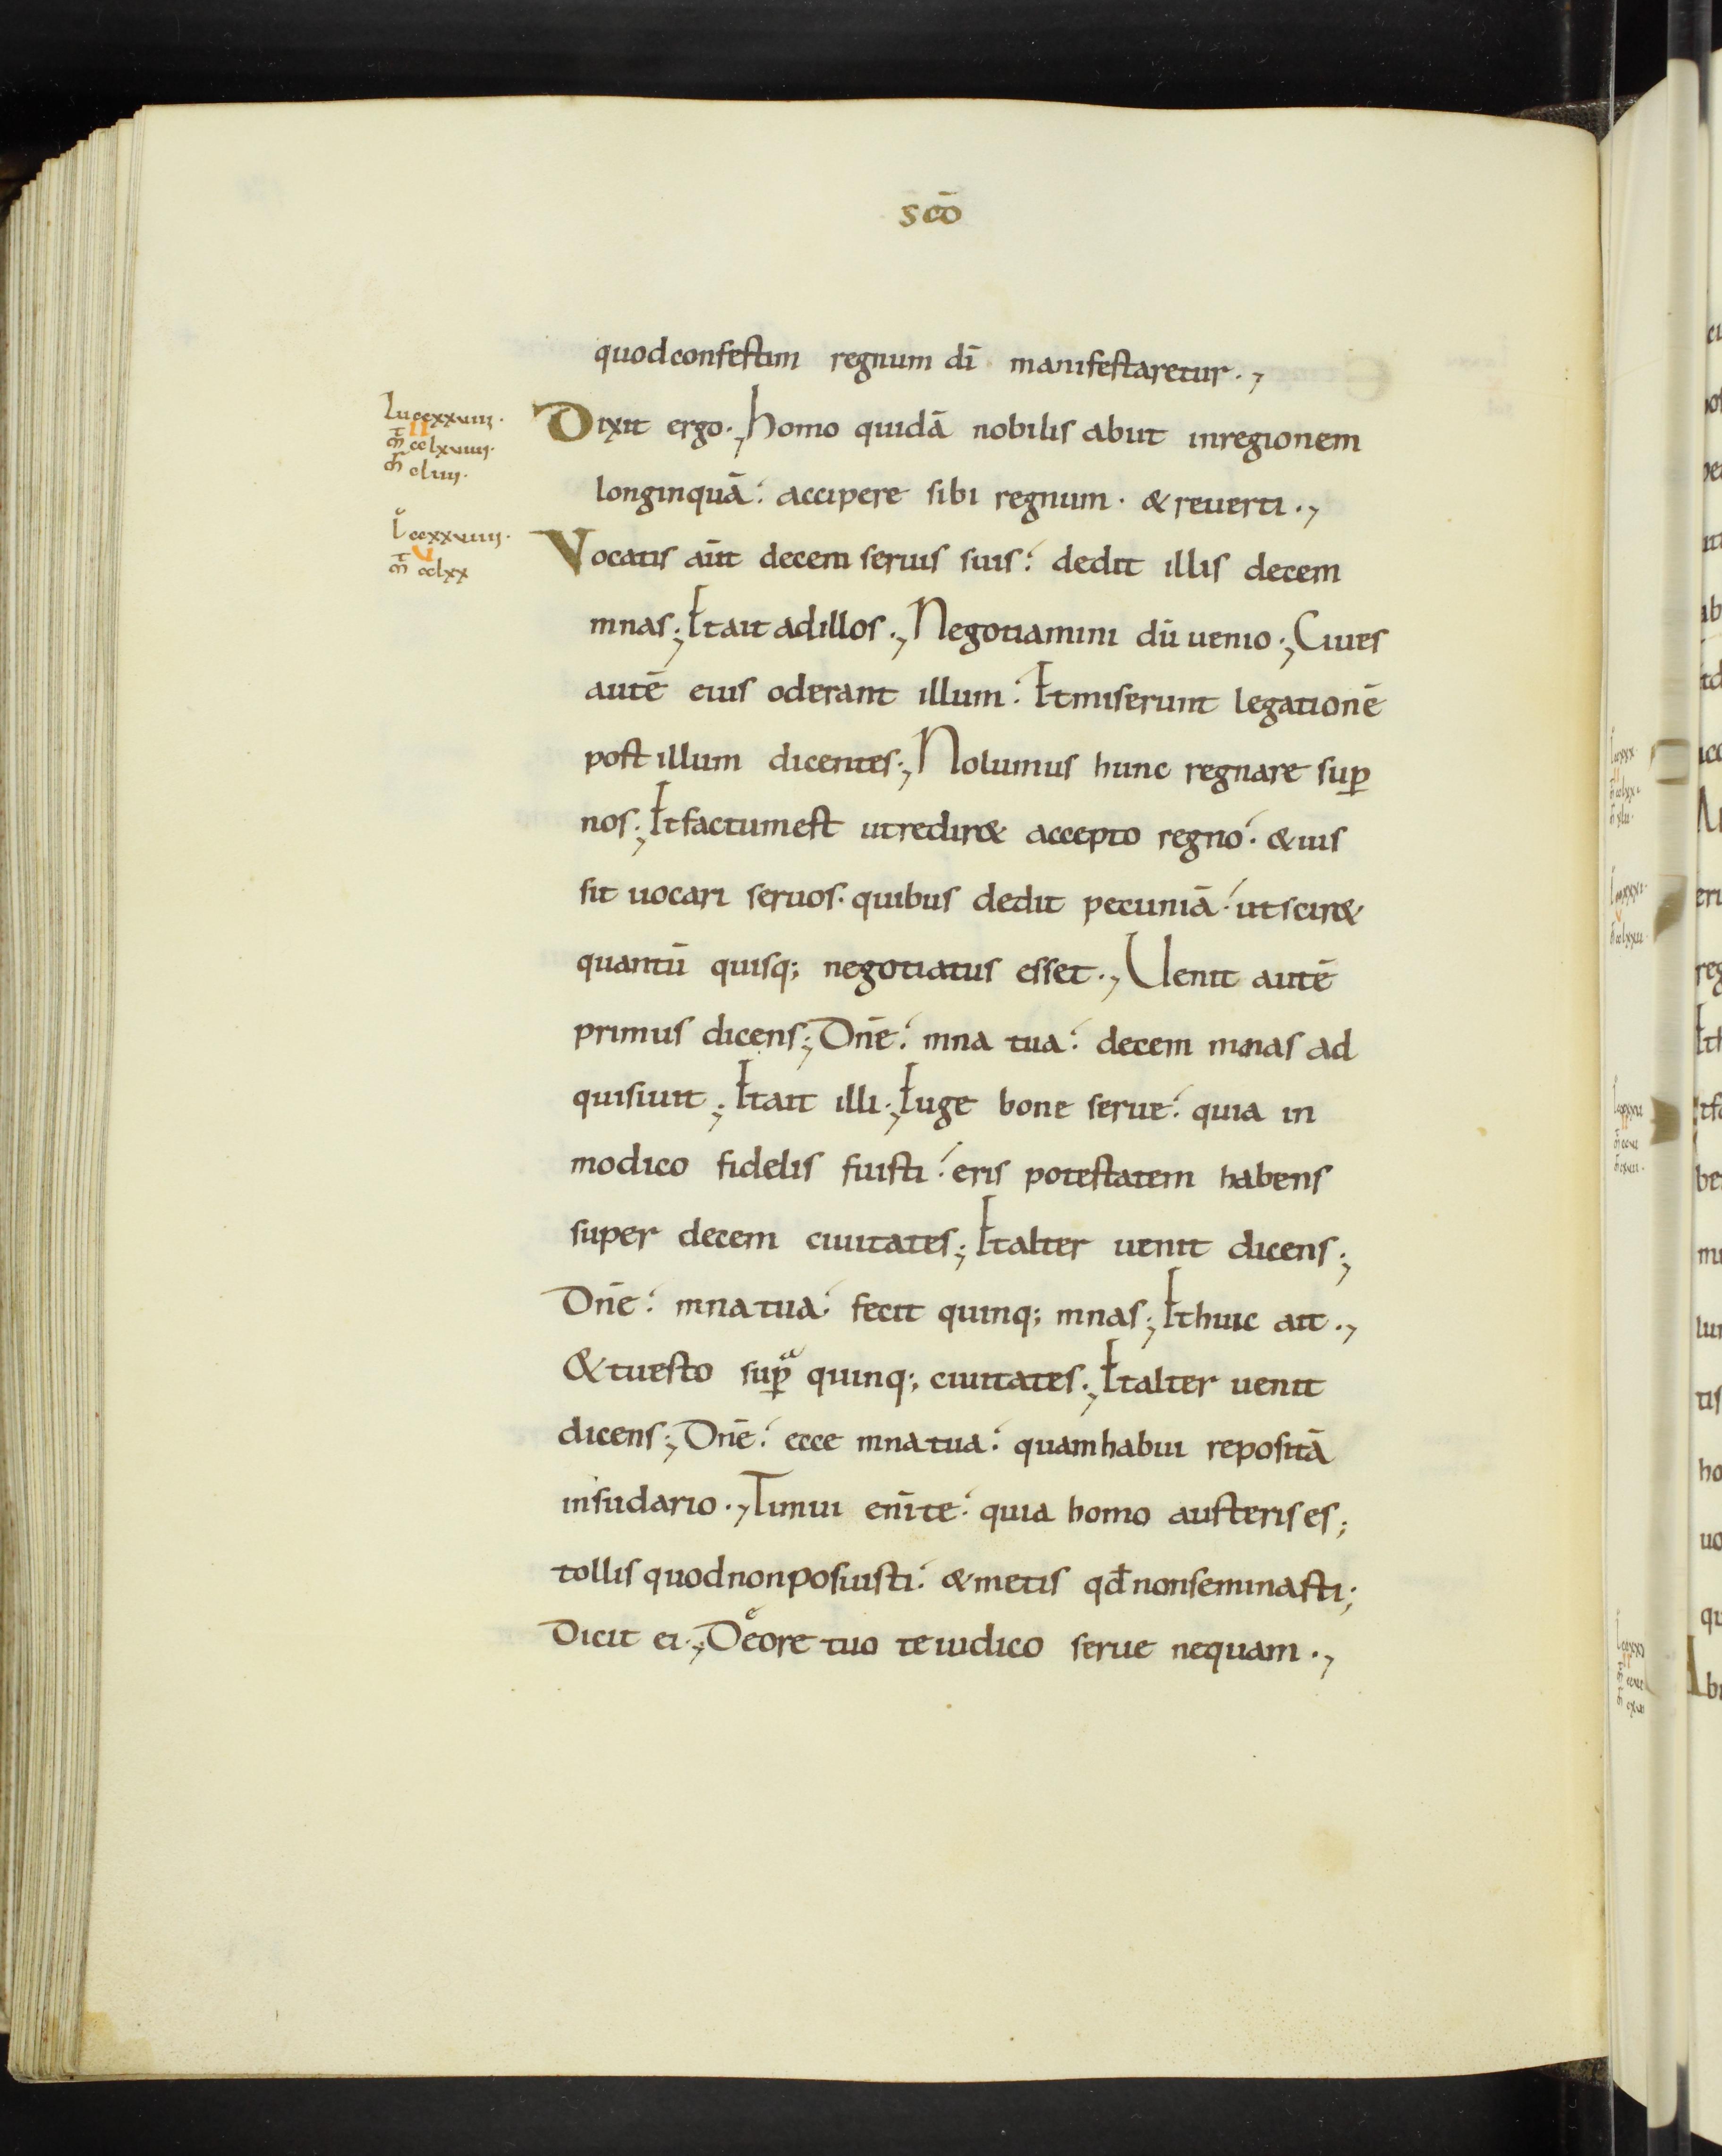 scō
quodconfestim regnum dī manifestaretur.,
Lu ccxxviii.
II
mt cclxviiii.
mr cliii.
Dixit ergo., homo quidā nobilis abiit inregionem
longinquā: accipere sibi regnum. & reuerti.,
L ccxxviiii.
V
mt cclxx
Vocatis aūt decem seruis suis: dedit illis decem
mnas; Et ait adillos., Negotiamini dū uenio; Ciues
autē eius oderant illum: Etmiserunt legationē
post illum dicentes; Nolumus hunc regnare suꝑ
nos; Etfactumest utredir& accepto regno: & ius
sit uocari seruos. quibus dedit pecuniā: utscir&
quantū quisq; negotiatus esset., Uenit autē
primus dicens; Dn̄e: mna tua: decem mnas ad
quisiuit; Etait illi; Euge bone serue: quia in
modico fidelis fuisti: eris potestatem habens
super decem ciuitates; Etalter uenit dicens;
Dn̄e: mnatua: fecit quinq; mnas; Ethuic ait.,
& tuesto suꝑᵃ quinq; ciuitates; Etalter uenit
dicens; Dn̄e: ecce mnatua: quamhabui repositā
insudario., Timui enī te: quia homo austerises;
tollis quodnonposuisti: & metis qđ nonseminasti;
Dicit ei; Deͦore tuo teiudico serue nequam.,